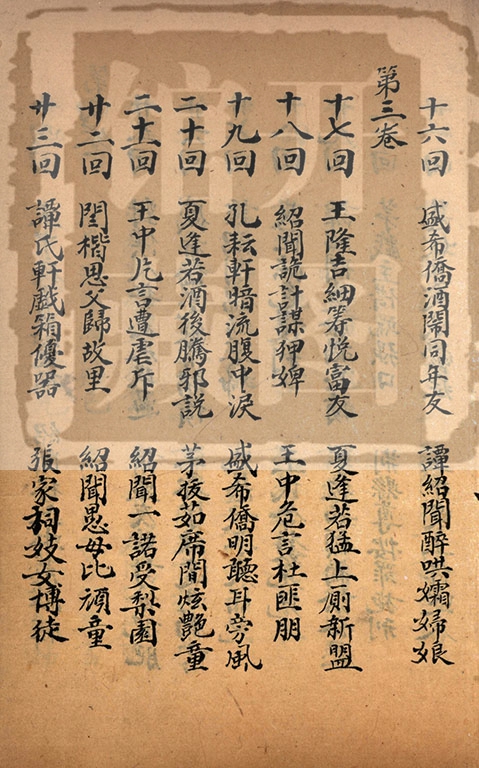 十六回　盛希僑酒鬧同年友　譚紹聞醉哄孀婦娘
第三卷
十七回　王隆吉細籌悅富友　夏逢若猛上廁新盟
十八回　紹聞詭計謀狎婢　王中危言杜匪朋
十九回　孔耘軒暗流腹中淚　盛希僑明聽耳旁風
二十回　夏逢若酒後騰邪說　茅拔茹席間炫艷童
二十一回　王中片言遭虐斥　紹聞一諾受梨園
廿二回　閻楷思父歸故里　紹聞愚母比頑童
廿三回　譚氏軒戲箱優器　張家祠妓女博徒